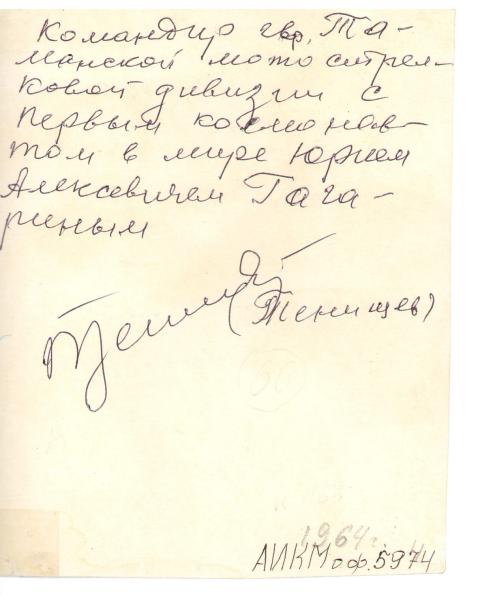 Командир гвр. Та-
манской мото стрел-
ковой дивизии с
первым космонав-
том в мире Юрием
Алексевичем Гага-
риным
(Тенищев)
1964 г.
АИКМ оф. 5974